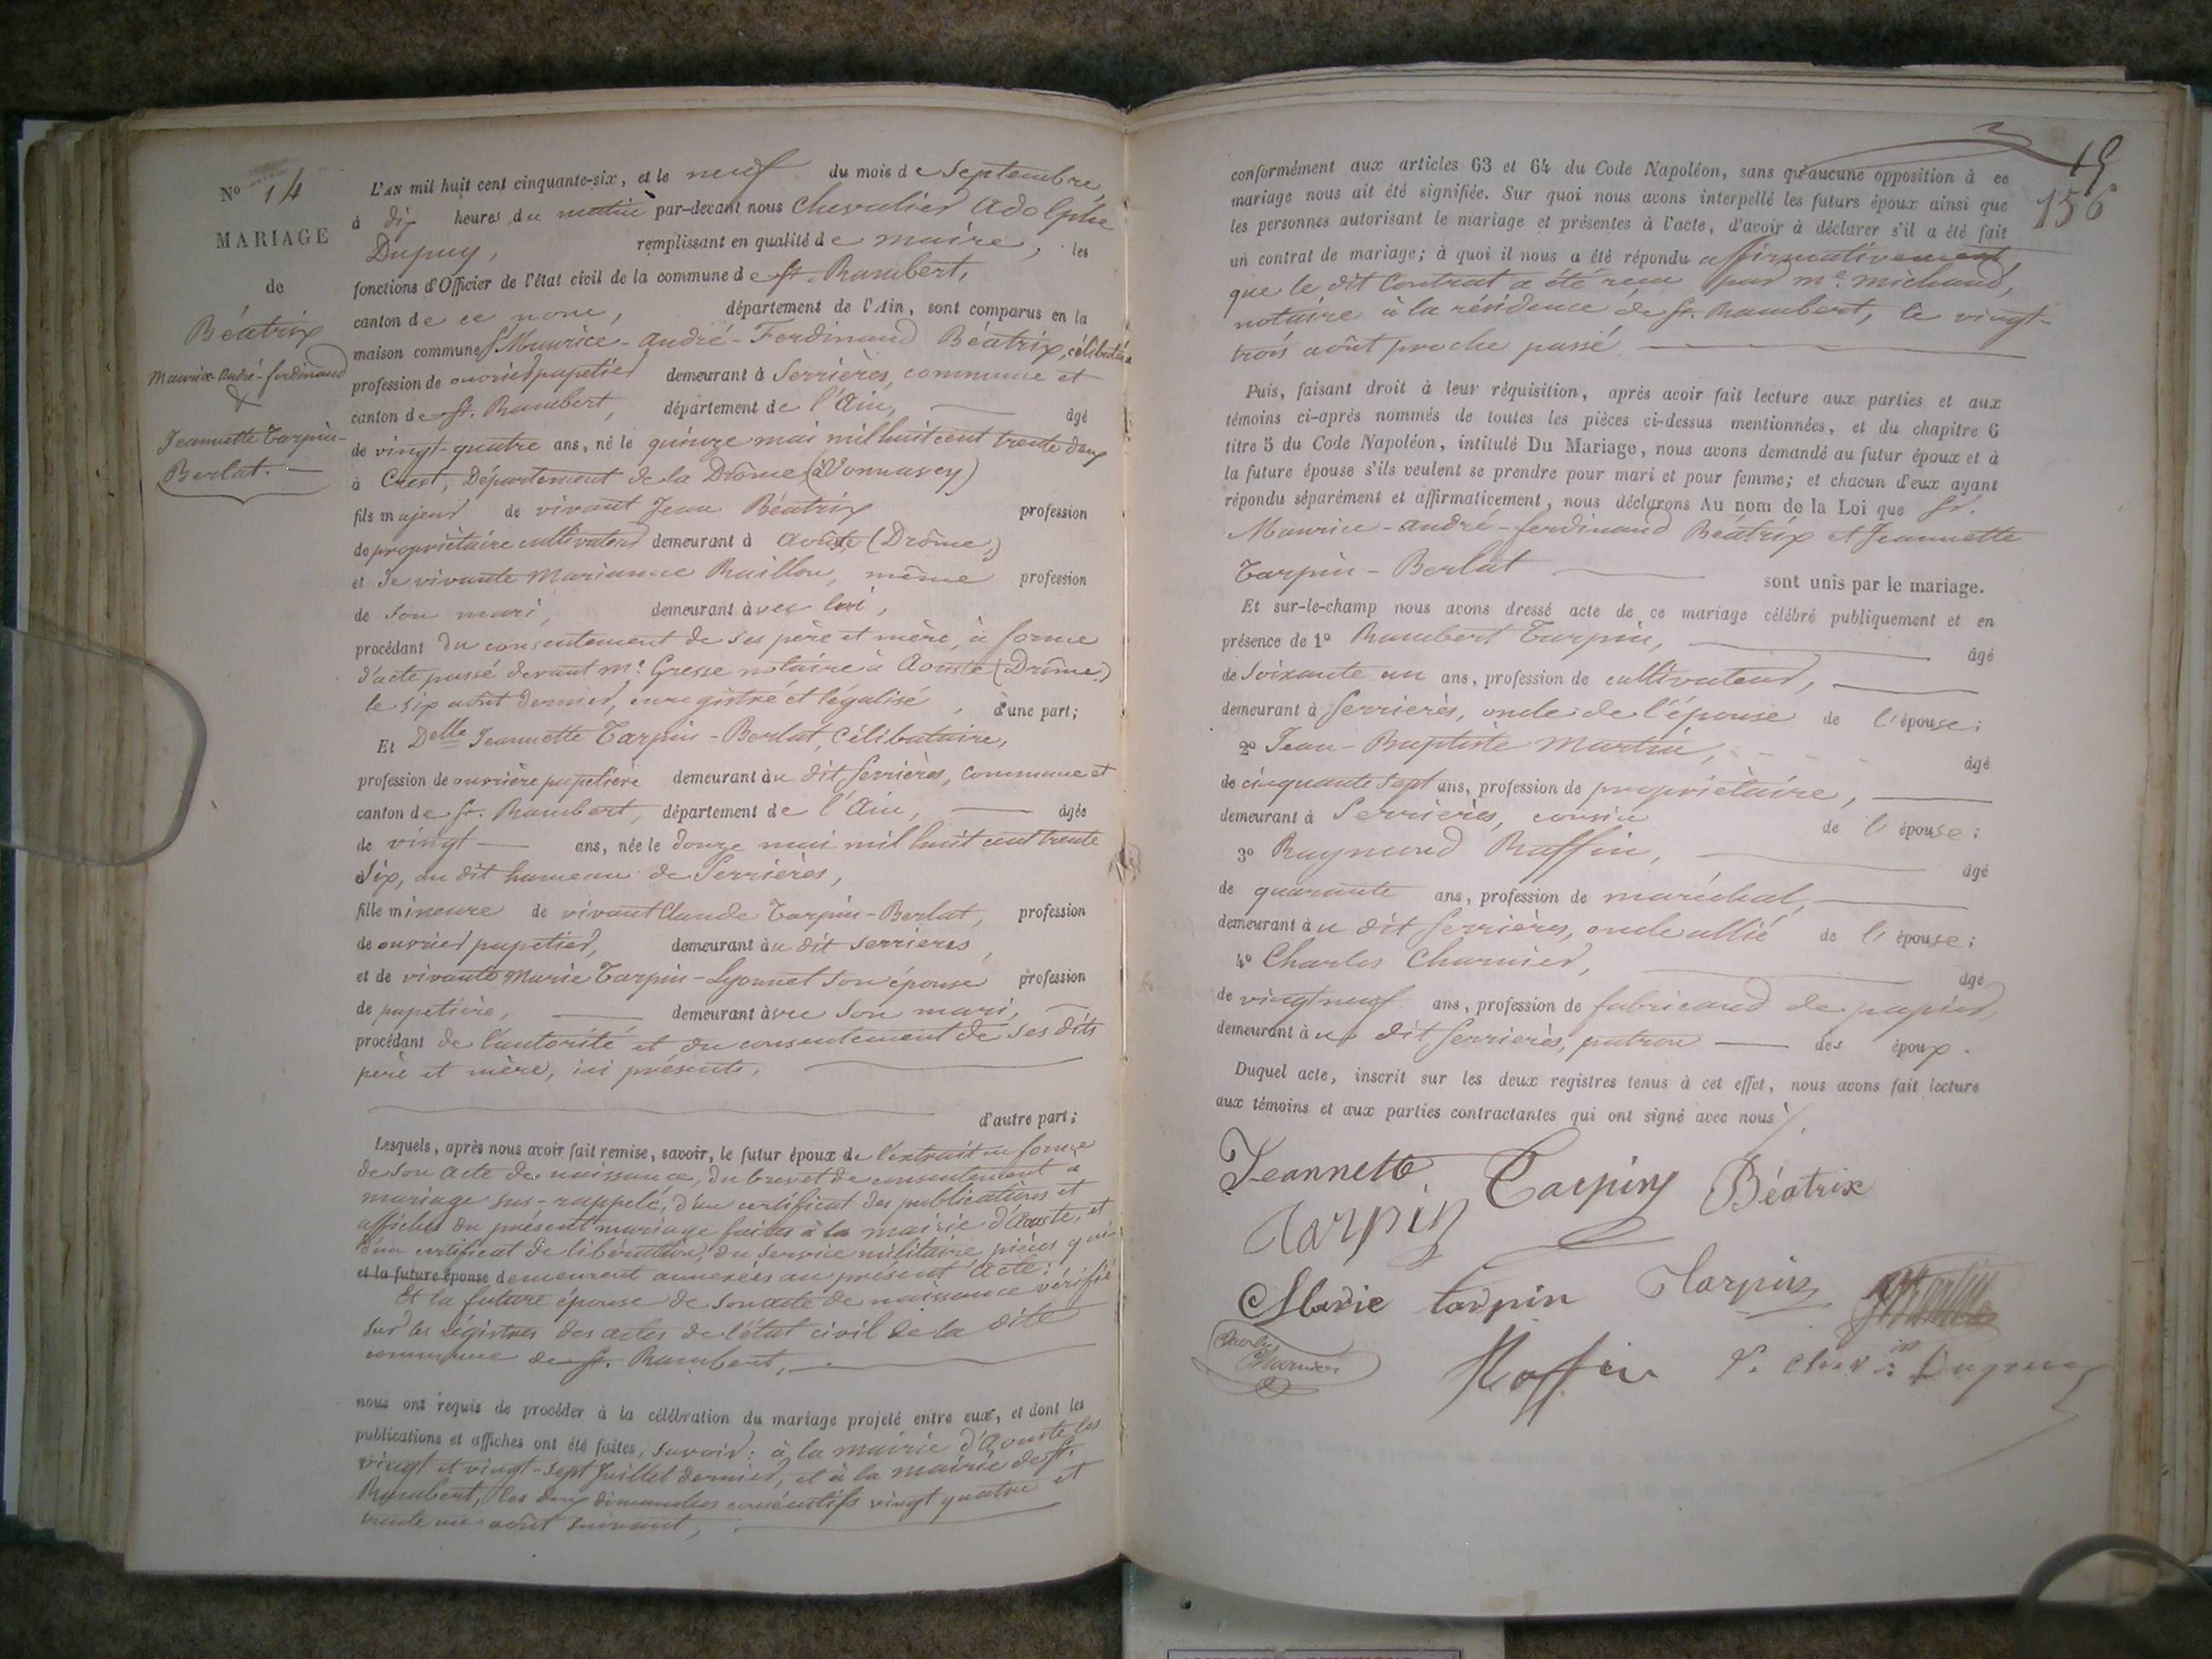 N° 14
MARIAGE
de
Béatrix
Maurice-André-ferdinand
&
Jeannette Tarpin-
Berlat.
L'AN mil huit cent cinquante-six, et le neuf du mois de Septembre
à dix heures du matin par-devant nous Chevalier Adolphe
Dupuy, remplissant en qualité de maire, les
fonctions d'Officier de l'état civil de la commune de St. Rambert,
canton de ce nom, département de l'Ain, sont comparus en la
maison commune Sr Maurice-André-Ferdinand Béatrix, célibataire
profession de ouvrier papetier demeurant à Serrières, commune et
canton de St. Rambert, département de l'Ain, âgé
de vingt-quatre ans, né le quinze mai mil huit cent trente deux
à Crest, Département de la Drôme (à Vonnavey)
fils majeur de vivant Jean Béatrix profession
de propriétaire cultivateur demeurant à Aouste (Drôme,)
et de vivante Marianne Raillon, même profession
de son mari, demeurant avec lui,
procédant du consentement de ses père et mère, à forme
d'acte passé devant Me. Gresse notaire à Aouste (Drôme)
le six août dernier, enregistré et légalisé, d'une part;
Et Delle Jeannette Tarpin-Berlat, Célibataire,
profession de ouvrière papetière demeurant au dit Serrières, commune et
canton de St. Rambert, département de l'Ain, âgée
de vingt ans, née le douze mai mil huit cent trente
Six, au dit hameau de Serrières,
fille mineure de vivant Claude Tarpin-Berlat, profession
de ouvrier papetier, demeurant au dit Serrières,
et de vivante Marie Tarpin-Lyonnet son épouse profession
de papetière, demeurant avec son mari,
procédant de l'autorité et du consentement de ses dits
père et mère, ici présents,
d'autre part;
Lesquels, après nous avoir fait remise, savoir, le futur époux de l'extrait en forme
de son acte de naissance, du brevet de consentement à
mariage sus-rappelé, d'un certificat des publications et
affiches du présent mariage faites à la mairie d'Aouste, et
d'un certificat de libération du service militaire, pièces qui
et la future épouse demeurent annexées au présent acte;
Et la future épouse de son acte de naissance vérifié
sur les régistres des actes de l'état civil de la dite
commune de St. Rambert,
nous ont requis de procéder à la célébration du mariage projeté entre eux, et dont les
publications et affiches ont été faites, savoir: à la mairie d'Aouste les
vingt et vingt-sept Juillet dernier, et à la mairie de St.
Rambert, les deux dimanches consécutifs vingt quatre et
trente un août suivant,
19
156
conformément aux articles 63 et 64 du Code Napoléon, sans qu'aucune opposition à ce
mariage nous ait été signifiée. Sur quoi nous avons interpellé les futurs époux ainsi que
les personnes autorisant le mariage et présentes à l'acte, d'avoir à déclarer s'il a été fait
un contrat de mariage; à quoi il nous a été répondu affirmativement,
que le dit Contrat a été reçu par Me. Michaud,
notaire à la résidence de St. Rambert, le vingt-
trois août proche passé
Puis, faisant droit à leur réquisition, après avoir fait lecture aux parties et aux
témoins ci-après nommés de toutes les pièces ci-dessus mentionnées, et du chapitre 6
titre 5 du Code Napoléon, intitulé Du Mariage, nous avons demandé au futur époux et à
la future épouse s'ils veulent se prendre pour mari et pour femme; et chacun d'eux ayant
répondu séparément et affirmativement, nous déclarons Au nom de la Loi que Sr.
Maurice-André-Ferdinand Béatrix et Jeannette
Tarpin-Berlat sont unis par le mariage.
Et sur-le-champ nous avons dressé acte de ce mariage célébré publiquement et en
présence de 1° Rambert Tarpin, âgé
de Soixante un ans, profession de cultivateur,
demeurant à Serrières, oncle de l'épouse de l'épouse;
2° Jean-Baptiste Martin, âgé
de cinquante sept ans, profession de propriétaire,
demeurant à Serrières, cousin de l'épouse;
3° Raymond Raffin, âgé
de quarante ans, profession de maréchal,
demeurant au dit Serrières, oncle allié de l'épouse;
4° Charles Charnier, âgé
de vingt neuf ans, profession de fabricand de papier,
demeurant au dit Serrières, patron des époux.
Duquel acte, inscrit sur les deux registres tenus à cet effet, nous avons fait lecture
aux témoins et aux parties contractantes qui ont signé avec nous
Jeannette Tarpin Béatrix
tarpin
Marie tarpin Tarpin
Charles
Charnier Raffin Chev. Dupuy